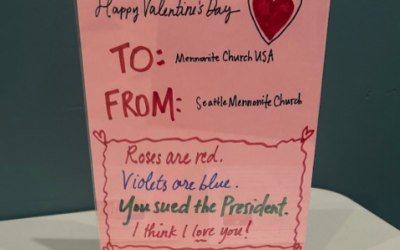 Happy Valentine's Day
TO: Mennonite Church USA
FROM: Seattle Mennonite Church
Roses are red.
Violets are blue.
You sued the President.
I think I love you!